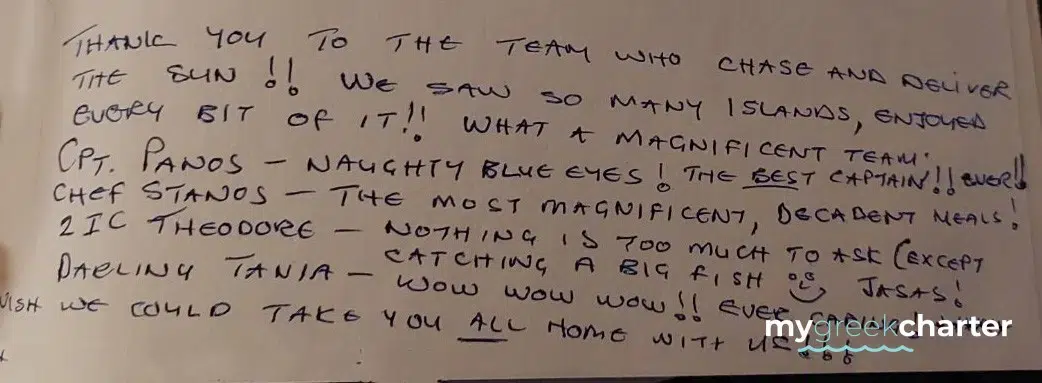 THANK YOU TO THE TEAM WHO CHASE AND DELIVER
THE SUN!! WE SAW SO MANY ISLANDS, ENJOYED
EVERY BIT OF IT!! WHAT A MAGNIFICENT TEAM.
CPT. PANOS – NAUGHTY BLUE EYES! THE BEST CAPTAIN!! EVER!!
CHEF STANOS – THE MOST MAGNIFICENT, DECADENT MEALS!
2IC THEODORE – NOTHING IS TOO MUCH TO ASK (EXCEPT
CATCHING A BIG FISH JASAS!
DARLING TANIA – WOW WOW WOW!! EVER
WISH WE COULD TAKE YOU ALL HOME WITH US!!!
mygreekcharter